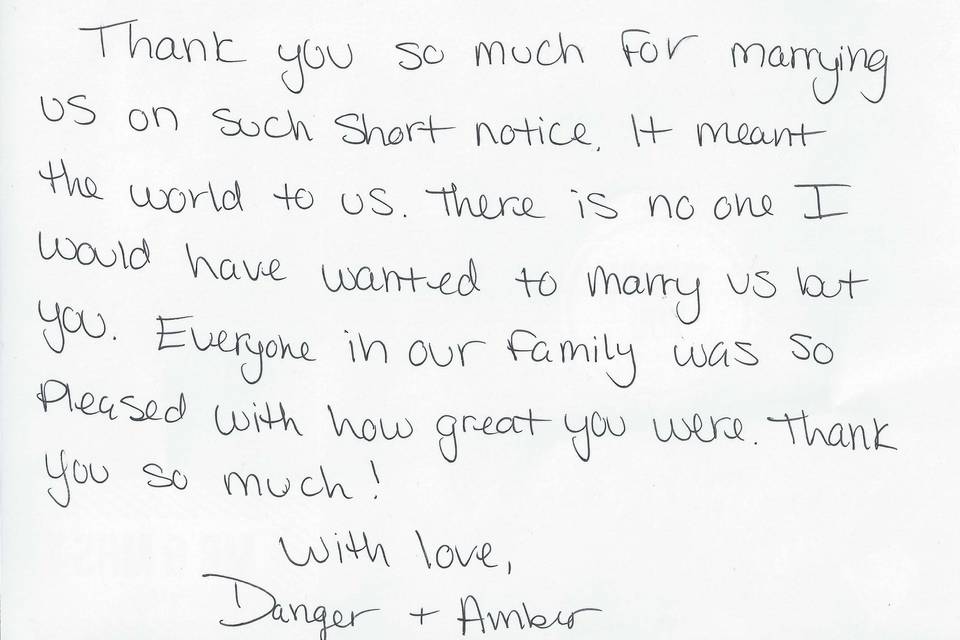 Thank you so much for marrying
us on such short notice. It meant
the world to us. There is no one I
would have wanted to marry us but
you. Everyone in our family was so
pleased with how great you were. Thank
you so much!
With love,
Danger + Amber